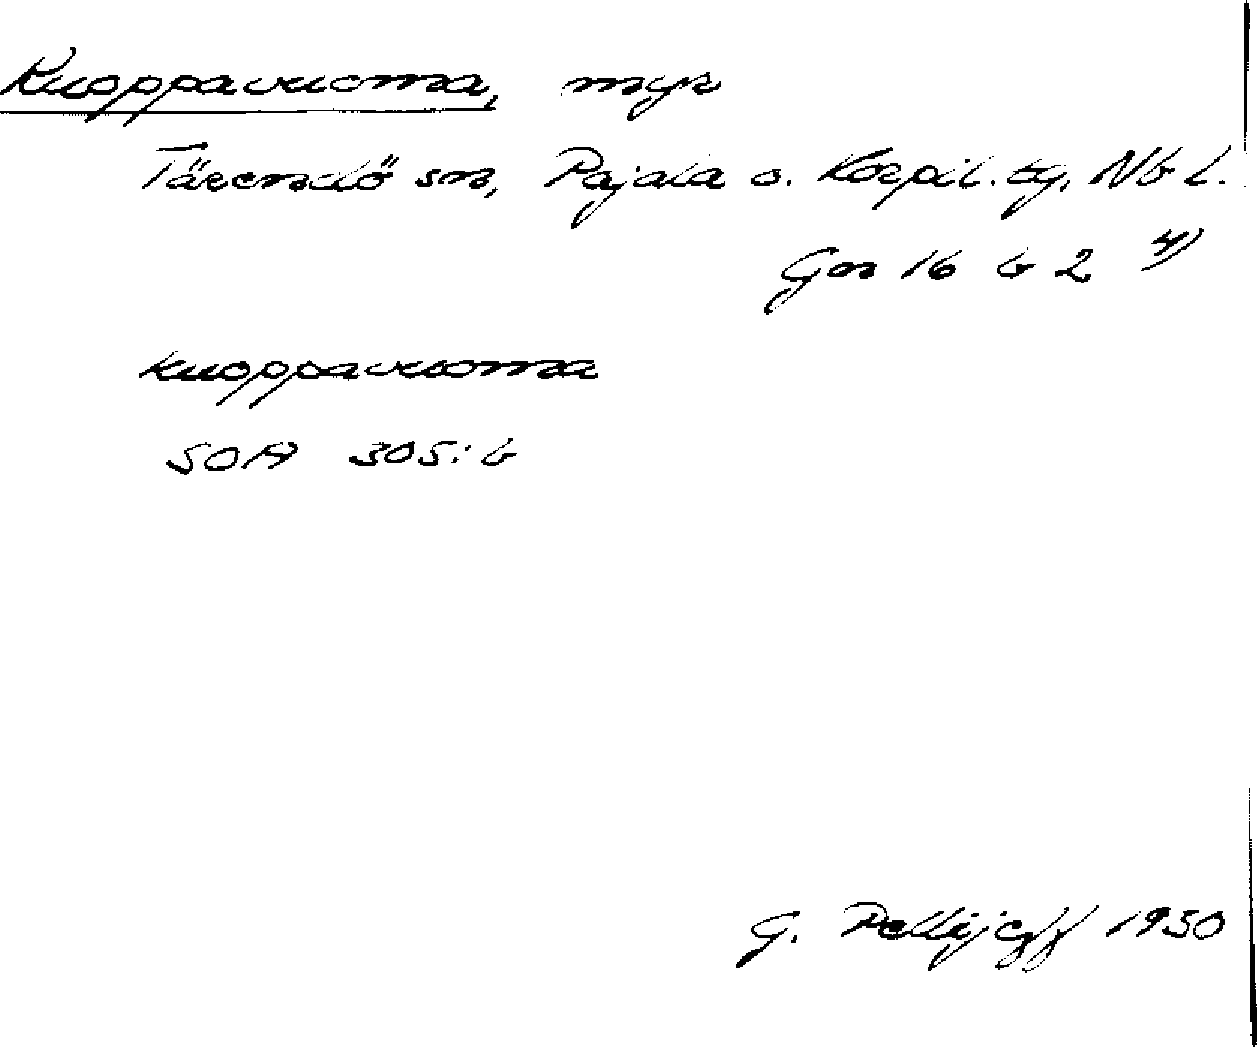 Kuoppavuoma, myr
Tärendö sn, Pajala o. Korpil. tg, Nb L.
Gn 16 b 2 4)
kuoppavuoma
SOA 305:6
G. Pellijeff 1950